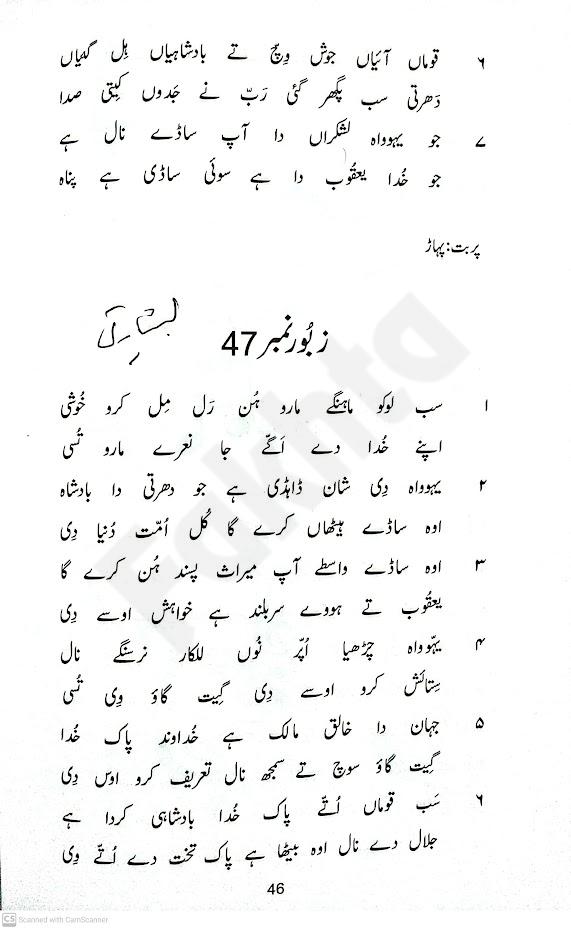 ۶ قوماں آئیاں جوش وِچ تے بادشاہیاں ہِل گئیاں
دَھرتی سب پِگھر گئی رَبّ نے جَدوں کِیتی صدا
۷ جو یہوواہ لشکراں دا آپ ساڈے نال ہے
جو خُدا یعقُوب دا ہے سوئی ساڈی ہے پناہ
پربت: پہاڑ
زبُور نمبر 47
۱ سب لوکو ماہنگے مارو ہُن رَل مِل کرو خُوشی
اپنے خُدا دے اَگّے جا نعرے مارو تُسی
۲ یہوواہ دِی شان ڈاہڈی ہے جو دھرتی دا بادشاہ
اوہ ساڈے ہیٹھاں کرے گا کُل اُمّت دُنیا دِی
۳ اوہ ساڈے واسطے آپ میراث پسند ہُن کرے گا
یعقُوب تے ہووے سربلند ہے خواہش اوسے دِی
۴ یہّوواہ چڑھیا اُپّر نُوں للکار نرسنگے نال
سِتائش کرو اوسے دِی گِیت گاؤ وِی تُسی
۵ جہان دا خالق مالک ہے خُداوند پاک خُدا
گِیت گاؤ سوچ تے سمجھ نال تعریف کرو اوس دِی
۶ سَب قوماں اُتّے پاک خُدا بادشاہی کردا ہے
جلال دے نال اوہ بیٹھا ہے پاک تخت دے اُتّے وِی
46
Fakhta
CS Scanned with CamScanner